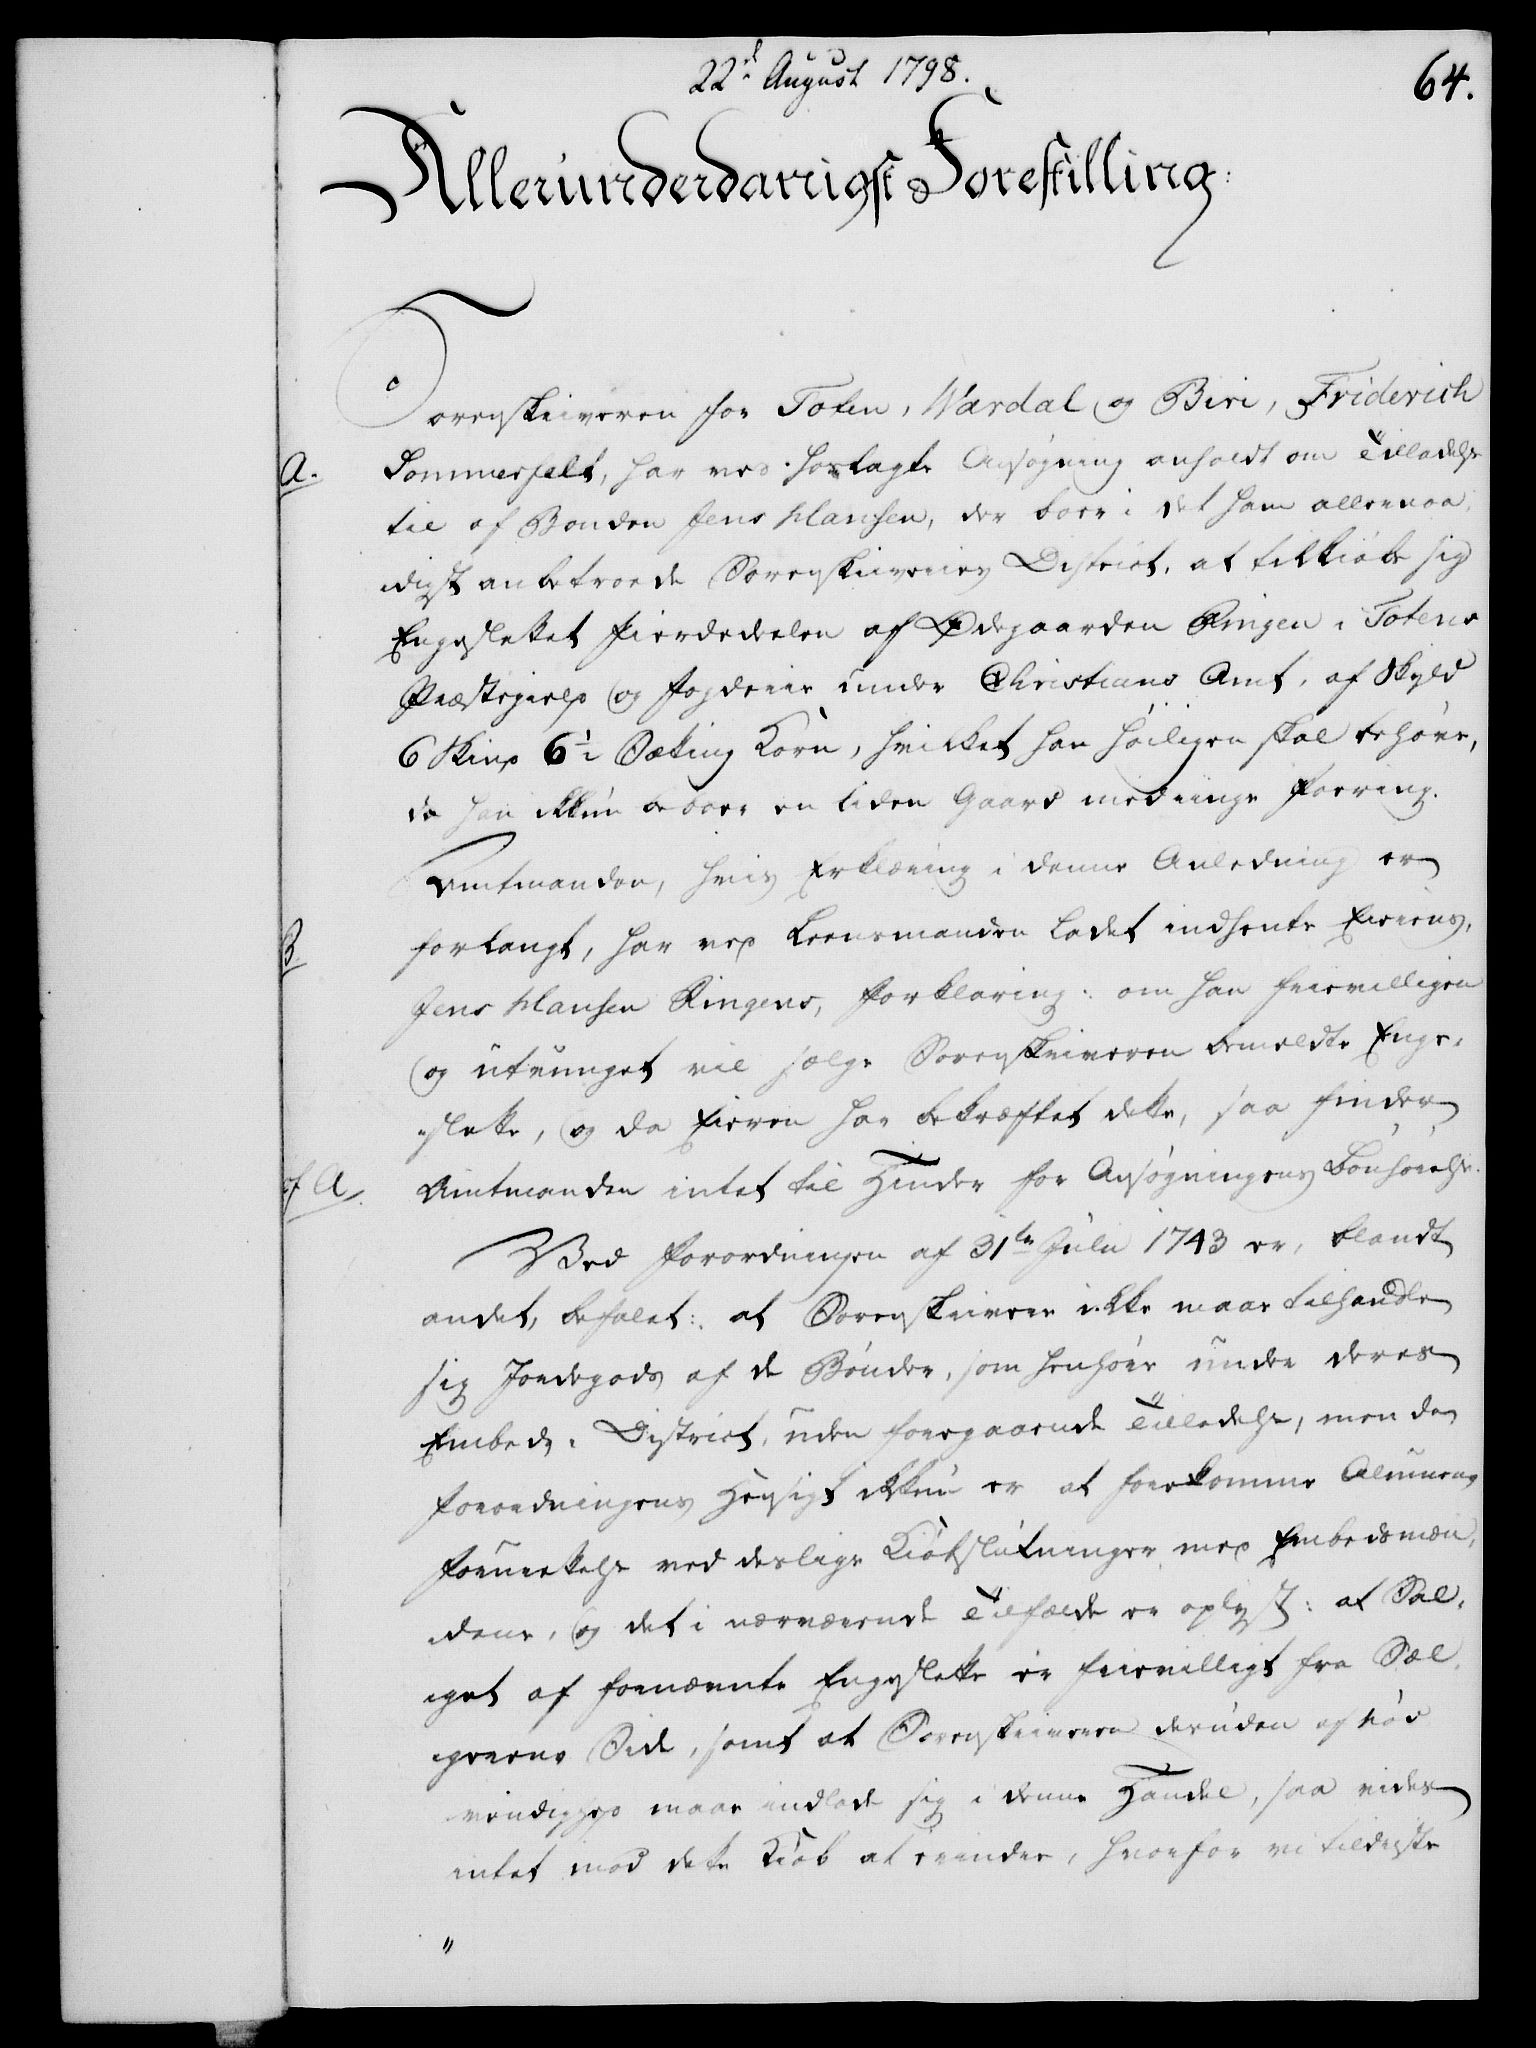 22d August 1798.
64.
Allerunderdanigst Forestilling:
Sorenskriveren for Toten, Wardal og Biri, Friderich
A.
Sommerfelt, har ved hoslagte Ansøgning anholdt om Tilladelse
til af Bonden Jens Hansen, der boer i det ham allernaa„
digst anbetroede Sorenskriveries District, at tilkiøbe sig
Engeslettet fierdedeelen af Ødegaarden Ringen i Totens
Præstegield og Fogderie under Christians Amt, af Skyld
6 Skind 6½ Sætting Korn, hvilket han høiligen skal behøve,
da han ikkun beboer en liden Gaard med ringe Foering.
Amtmanden, hvis Erklæring i denne Anledning er
B
forlangt, har ved Leensmanden ladet indhente Eierens,
Jens Hansen Ringens, Forklaring: om han frievilligen
og utvunget vil sælge Sorenskriveren bemeldte Enge„
slette, og da Eieren har bekræftet dette, saa finder
f A.
Amtmanden intet til Hinder for Ansøgningens Bønhørelse.
Ved Forordningen af 31te Julii 1743 er, blandt
andet, befalet: at Sorenskrivere ikke maae tilhandle
sig Jordegods af de Bønder, som henhøre under deres
Embeds District, uden foregaaende Tilladelse, men da
Forordningens Hensigt ikkun er at forekomme Almuens
Fornærmelse ved deslige Kiøbslutninger med Embedsmæn„
dene, og det i nærværende Tilfælde er oplyst: at Sal„
get af fornævnte Engeslette er frievilligt fra Sæl„
gerens Side, samt at Sorenskriveren desuden af Nød
vendighed maae indlade sig i denne Handel, saa vides
intet mod dette Kiøb at erindre, hvorfor vi tildeels
"